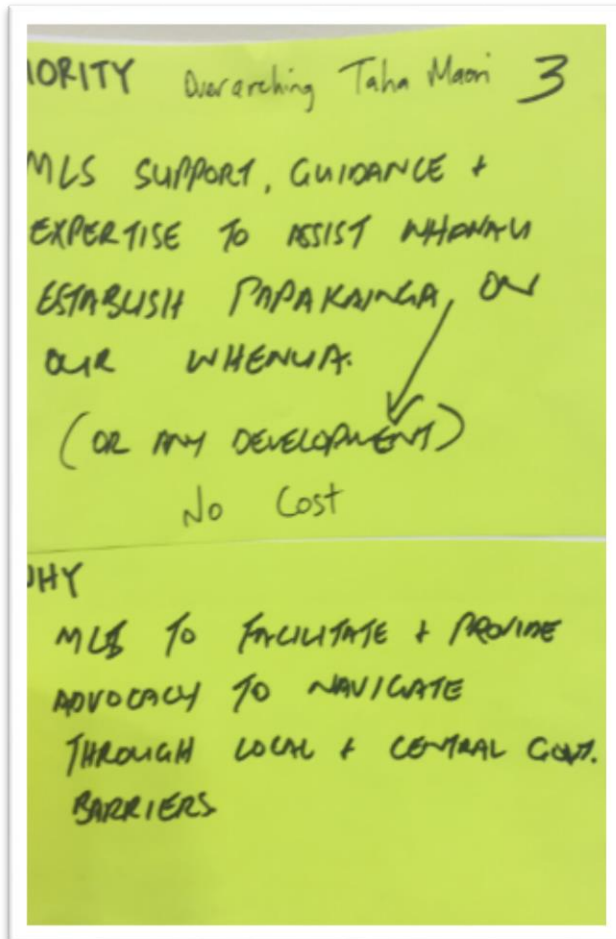 IORITY Overarching Taha Maori 3
MLS SUPPORT, GUIDANCE +
EXPERTISE TO ASSIST WHANAU
ESTABLISH PAPAKAINGA, ON
OUR WHENUA.
(OR ANY DEVELOPMENT)
No Cost
WHY
MLS TO FACILITATE + PROVIDE
ADVOCACY TO NAVIGATE
THROUGH LOCAL + CENTRAL GOVT.
BARRIERS